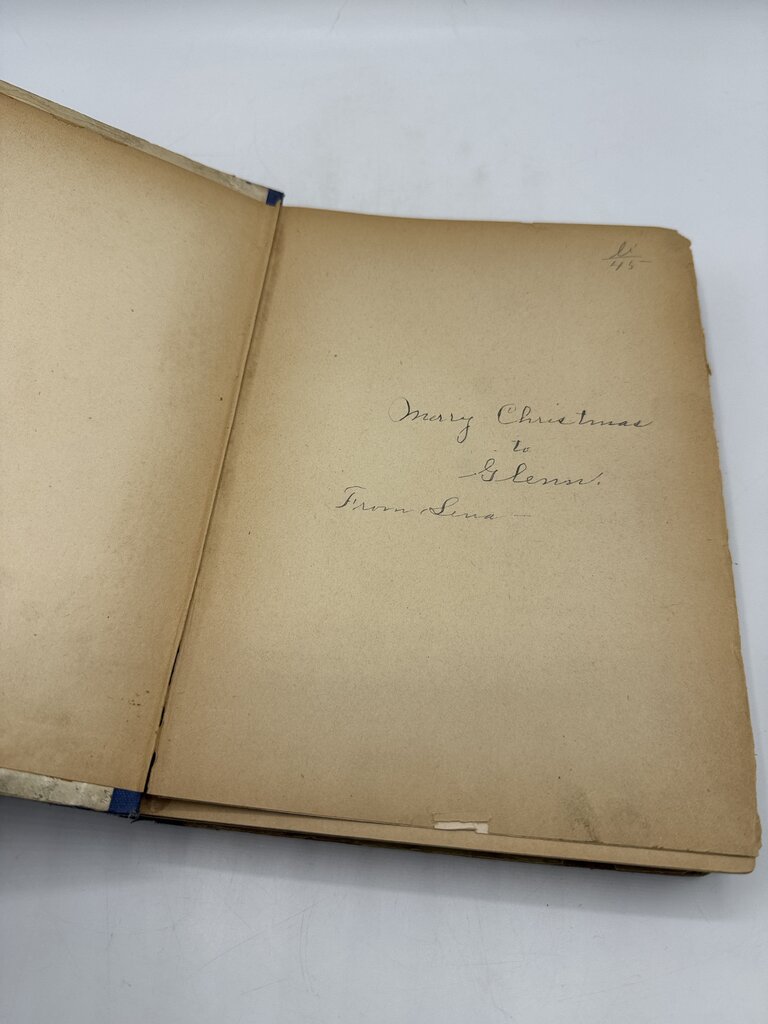 45
Merry Christmas
to
Glenn.
From Lena —